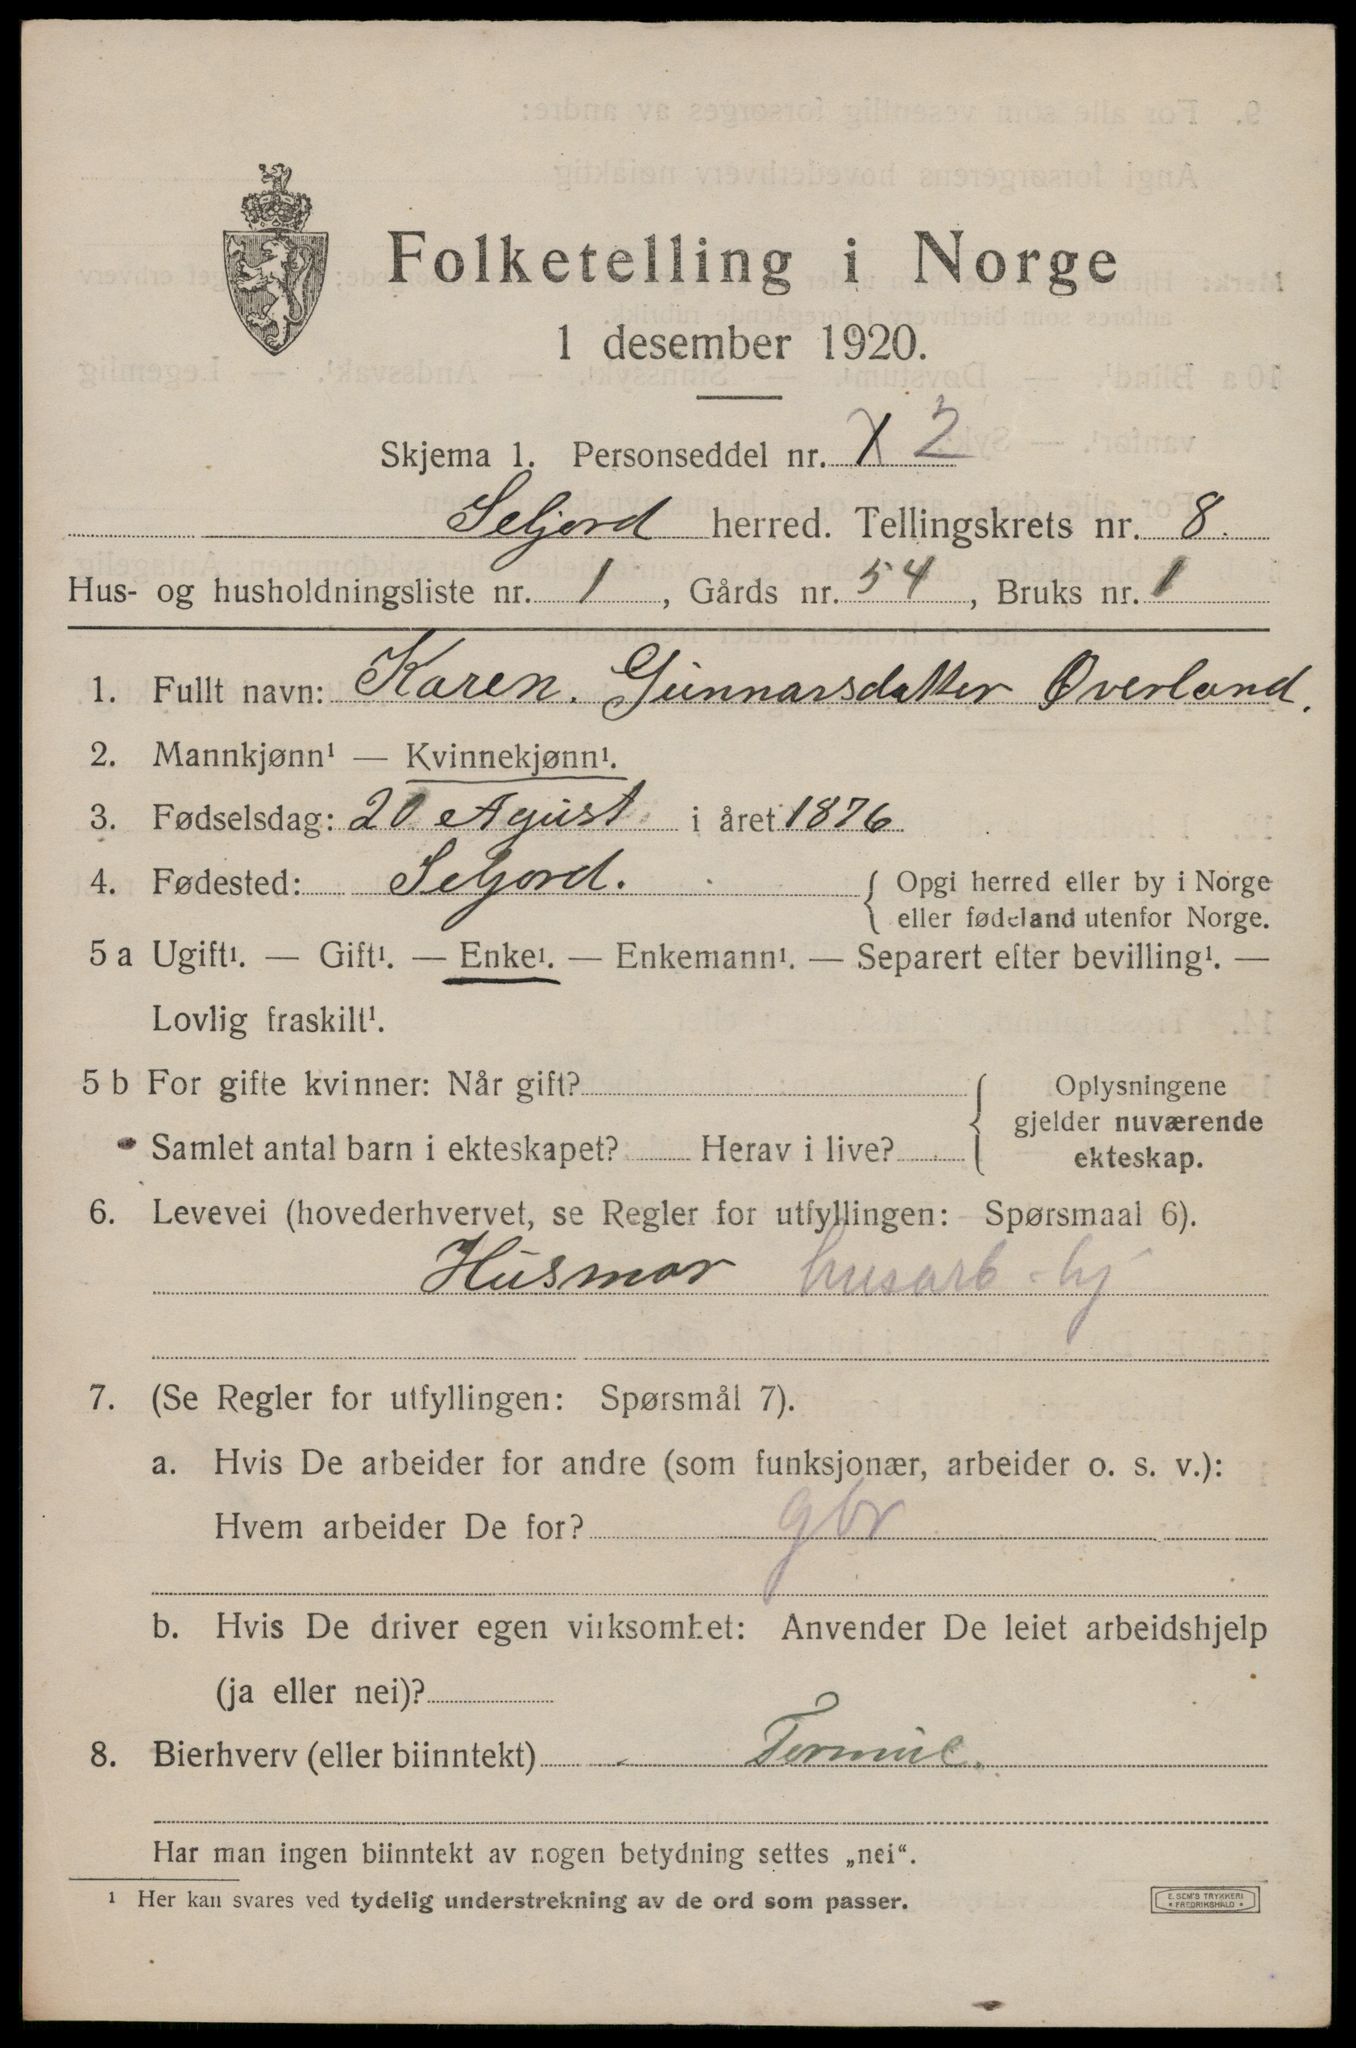 Folketelling i Norge
1 desember 1920.
Skjema 1. Personseddel nr. X 2
Seljord herred. Tellingskrets nr. 8.
Hus- og husholdningsliste nr. 1, Gårds nr. 54, Bruks nr. 1
1. Fullt navn: Karen. Gunnarsdatter Øverland.
2. Mannkjønn¹ — Kvinnekjønn¹.
3. Fødselsdag: 20 Agust i året 1876
4. Fødested: Seljord. { Opgi herred eller by i Norge
eller fødeland utenfor Norge.
5 a Ugift¹. — Gift¹. — Enke¹. — Enkemann¹. — Separert efter bevilling¹. —
Lovlig fraskilt¹.
5 b For gifte kvinner: Når gift? { Oplysningene
gjelder nuværende
ekteskap.
Samlet antal barn i ekteskapet? Herav i live?
6. Levevei (hovederhvervet, se Regler for utfyllingen: Spørsmaal 6).
Husmor husarb. hj
7. (Se Regler for utfyllingen: Spørsmål 7).
a. Hvis De arbeider for andre (som funksjonær, arbeider o. s. v.):
Hvem arbeider De for? gbr
b. Hvis De driver egen virksomhet: Anvender De leiet arbeidshjelp
(ja eller nei)?
8. Bierhverv (eller biinntekt)
Har man ingen biinntekt av nogen betydning settes „nei“.
¹ Her kan svares ved tydelig understrekning av de ord som passer.
E. SEM'S TRYKKERI
* FREDRIKSHALD *